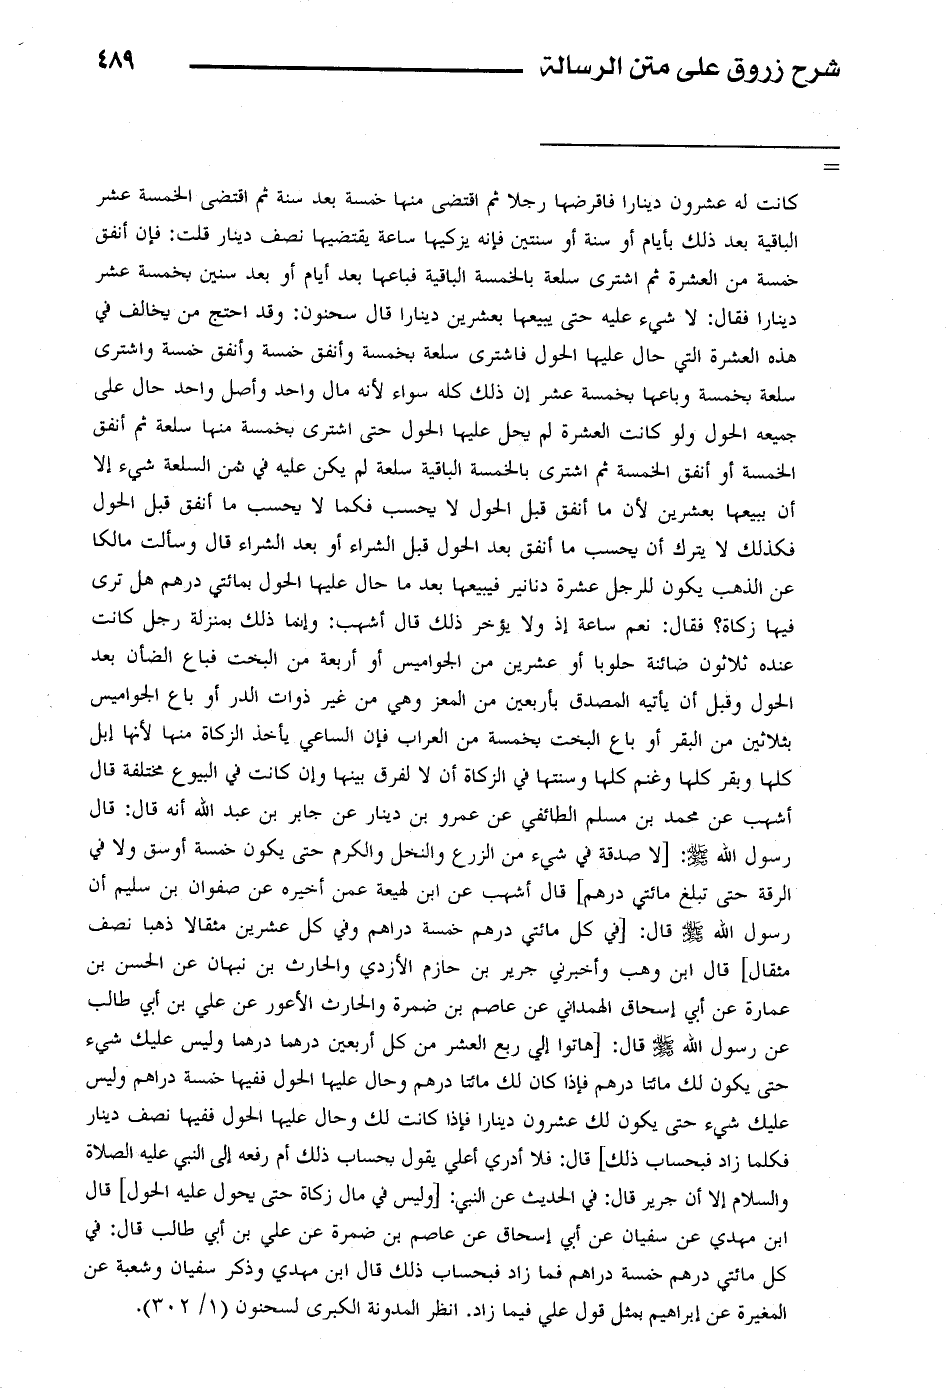 شرح زروق على متن الرسالة ٤٨٩
=
كانت له عشرون دينارا فاقرضها رجلا ثم اقتضى منها خمسة بعد سنة ثم اقتضى الخمسة عشر
الباقية بعد ذلك بأيام أو سنة أو سنتين فإنه يزكيها ساعة يقتضيها نصف دينار قلت: فإن أنفق
خمسة من العشرة ثم اشترى سلعة بالخمسة الباقية فباعها بعد أيام أو بعد سنين بخمسة عشر
دينارا فقال: لا شيء عليه حتى يبيعها بعشرين دينارا قال سحنون: وقد احتج من يخالف في
هذه العشرة التي حال عليها الحول فاشترى سلعة بخمسة وأنفق خمسة وأنفق خمسة واشترى
سلعة بخمسة وباعها بخمسة عشر إن ذلك كله سواء لأنه مال واحد وأصل واحد حال على
جميعه الحول ولو كانت العشرة لم يحل عليها الحول حتى اشترى بخمسة منها سلعة ثم أنفق
الخمسة أو أنفق الخمسة ثم اشترى بالخمسة الباقية سلعة لم يكن عليه في ثمن السلعة شيء إلا
أن يبيعها بعشرين لأن ما أنفق قبل الحول لا يحسب فكما لا يحسب ما أنفق قبل الحول
فكذلك لا يترك أن يحسب ما أنفق بعد الحول قبل الشراء أو بعد الشراء قال وسألت مالكا
عن الذهب يكون للرجل عشرة دنانير فيبيعها بعد ما حال عليها الحول بمائتي درهم هل ترى
فيها زكاة؟ فقال: نعم ساعة إذ ولا يؤخر ذلك قال أشهب: وإنما ذلك بمنزلة رجل كانت
عنده ثلاثون ضائنة حلوبا أو عشرين من الجواميس أو أربعة من البخت فباع الضأن بعد
الحول وقبل أن يأتيه المصدق بأربعين من المعز وهي من غير ذوات الدر أو باع الجواميس
بثلاثين من البقر أو باع البخت بخمسة من العراب فإن الساعي يأخذ الزكاة منها لأنها إبل
كلها وبقر كلها وغنم كلها وسنتها في الزكاة أن لا لفرق بينها وإن كانت في البيوع مختلفة قال
أشهب عن محمد بن مسلم الطائفي عن عمرو بن دينار عن جابر بن عبد الله أنه قال: قال
رسول الله ﷺ: [لا صدقة في شيء من الزرع والنخل والكرم حتى يكون خمسة أوسق ولا في
الرقة حتى تبلغ مائتي درهم] قال أشهب عن ابن لهيعة عمن أخبره عن صفوان بن سليم أن
رسول الله ﷺ قال: [في كل مائتي درهم خمسة دراهم وفي كل عشرين مثقالا ذهبا نصف
مثقال] قال ابن وهب وأخبرني جرير بن حازم الأزدي والحارث بن نبهان عن الحسن بن
عمارة عن أبي إسحاق الهمداني عن عاصم بن ضمرة والحارث الأعور عن علي بن أبي طالب
عن رسول الله ﷺ قال: [هاتوا إلي ربع العشر من كل أربعين درهما درهما وليس عليك شيء
حتى يكون لك مائتا درهم فإذا كان لك مائتا درهم وحال عليها الحول ففيها خمسة دراهم وليس
عليك شيء حتى يكون لك عشرون دينارا فإذا كانت لك وحال عليها الحول ففيها نصف دينار
فكلما زاد فبحساب ذلك] قال: فلا أدري أعلي يقول بحساب ذلك أم رفعه إلى النبي عليه الصلاة
والسلام إلا أن جرير قال: في الحديث عن النبي: [وليس في مال زكاة حتى يحول عليه الحول] قال
ابن مهدي عن سفيان عن أبي إسحاق عن عاصم بن ضمرة عن علي بن أبي طالب قال: في
كل مائتي درهم خمسة دراهم فما زاد فبحساب ذلك قال ابن مهدي وذكر سفيان وشعبة عن
المغيرة عن إبراهيم بمثل قول علي فيما زاد. انظر المدونة الكبرى لسحنون (١/ ٣٠٢).